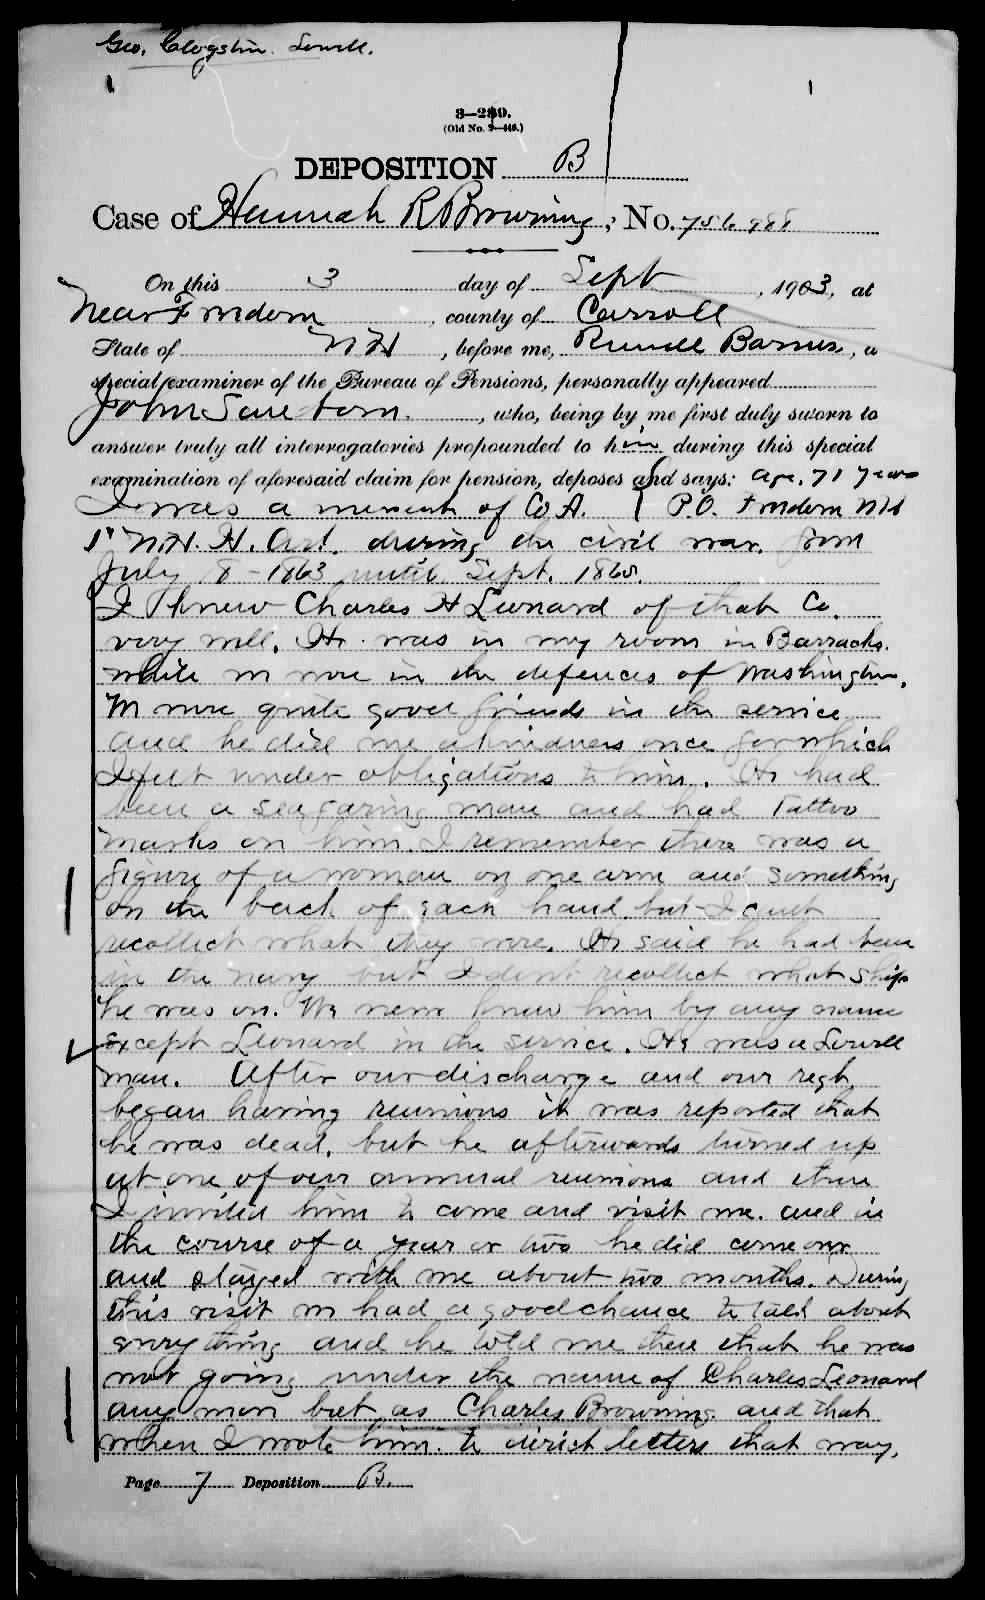 Geo. Clogston. Lowell.
1
3—230.
(Old No. 3—446.)
DEPOSITION B
Case of Hannah R Browning, No. 756.988
On this 3 day of Sept, 1903, at
Near Freedom, county of Carroll
State of N H, before me, Barnes, a
special examiner of the Bureau of Pensions, personally appeared
John Sanborn., who, being by me first duly sworn to
answer truly all interrogatories propounded to him during this special
examination of aforesaid claim for pension, deposes and says: Age. 71 years
I was a member of Co A. P.O. Freedom NH
1st N.H. H. Art. during the civil war. from
July 8 - 1863 until Sept. 1865.
I knew Charles H Leonard of that Co.
very well. He was in my room in Barracks.
while we were in the defences of Washington.
We were quite good friends in the service
and he did me a kindness once for which
I felt under obligations to him. He had
been a seafaring man and had Tattoo
marks on him. I remember there was a
figure of a woman on one arm and something
on the back of each hand but I cant
recollect what they were. He said he had been
in the navy but I dont recollect what ships
he was on. We never knew him by any name
except Leonard in the service. He was a Lowell
man. After our discharge and our regt.
began having reunions it was reported that
he was dead, but he afterwards turned up
at one of our annual reunions and there
I invited him to come and visit me. and in
the course of a year or two he did come over
and stayed with me about two months. During
this visit we had a good chance to talk about
everything and he told me then that he was
not going under the name of Charles Leonard
any more but as Charles Browning. and that
when I wrote him. to direct letters that way.
Page 7 Deposition B.